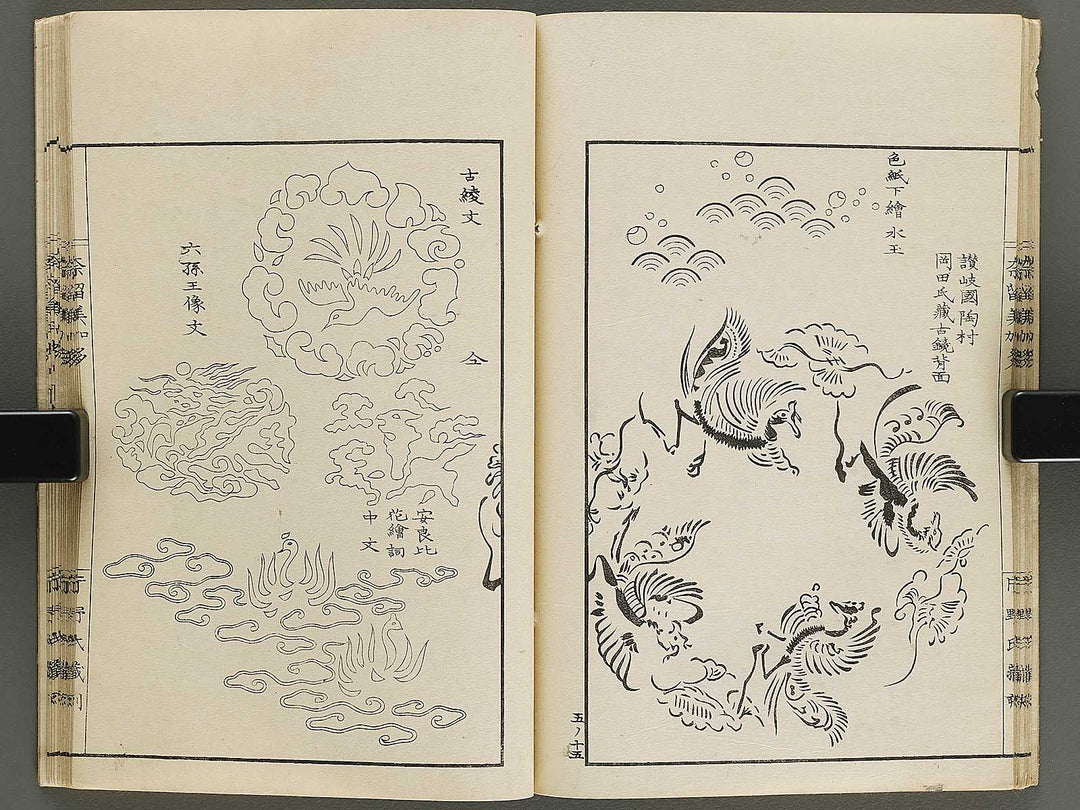 色紙下繪 水玉
讃岐國陶村
岡田氏藏古鏡背面
五ノ十五
古綾文
仝
六孫王像文
安良比
花繪詞
中文